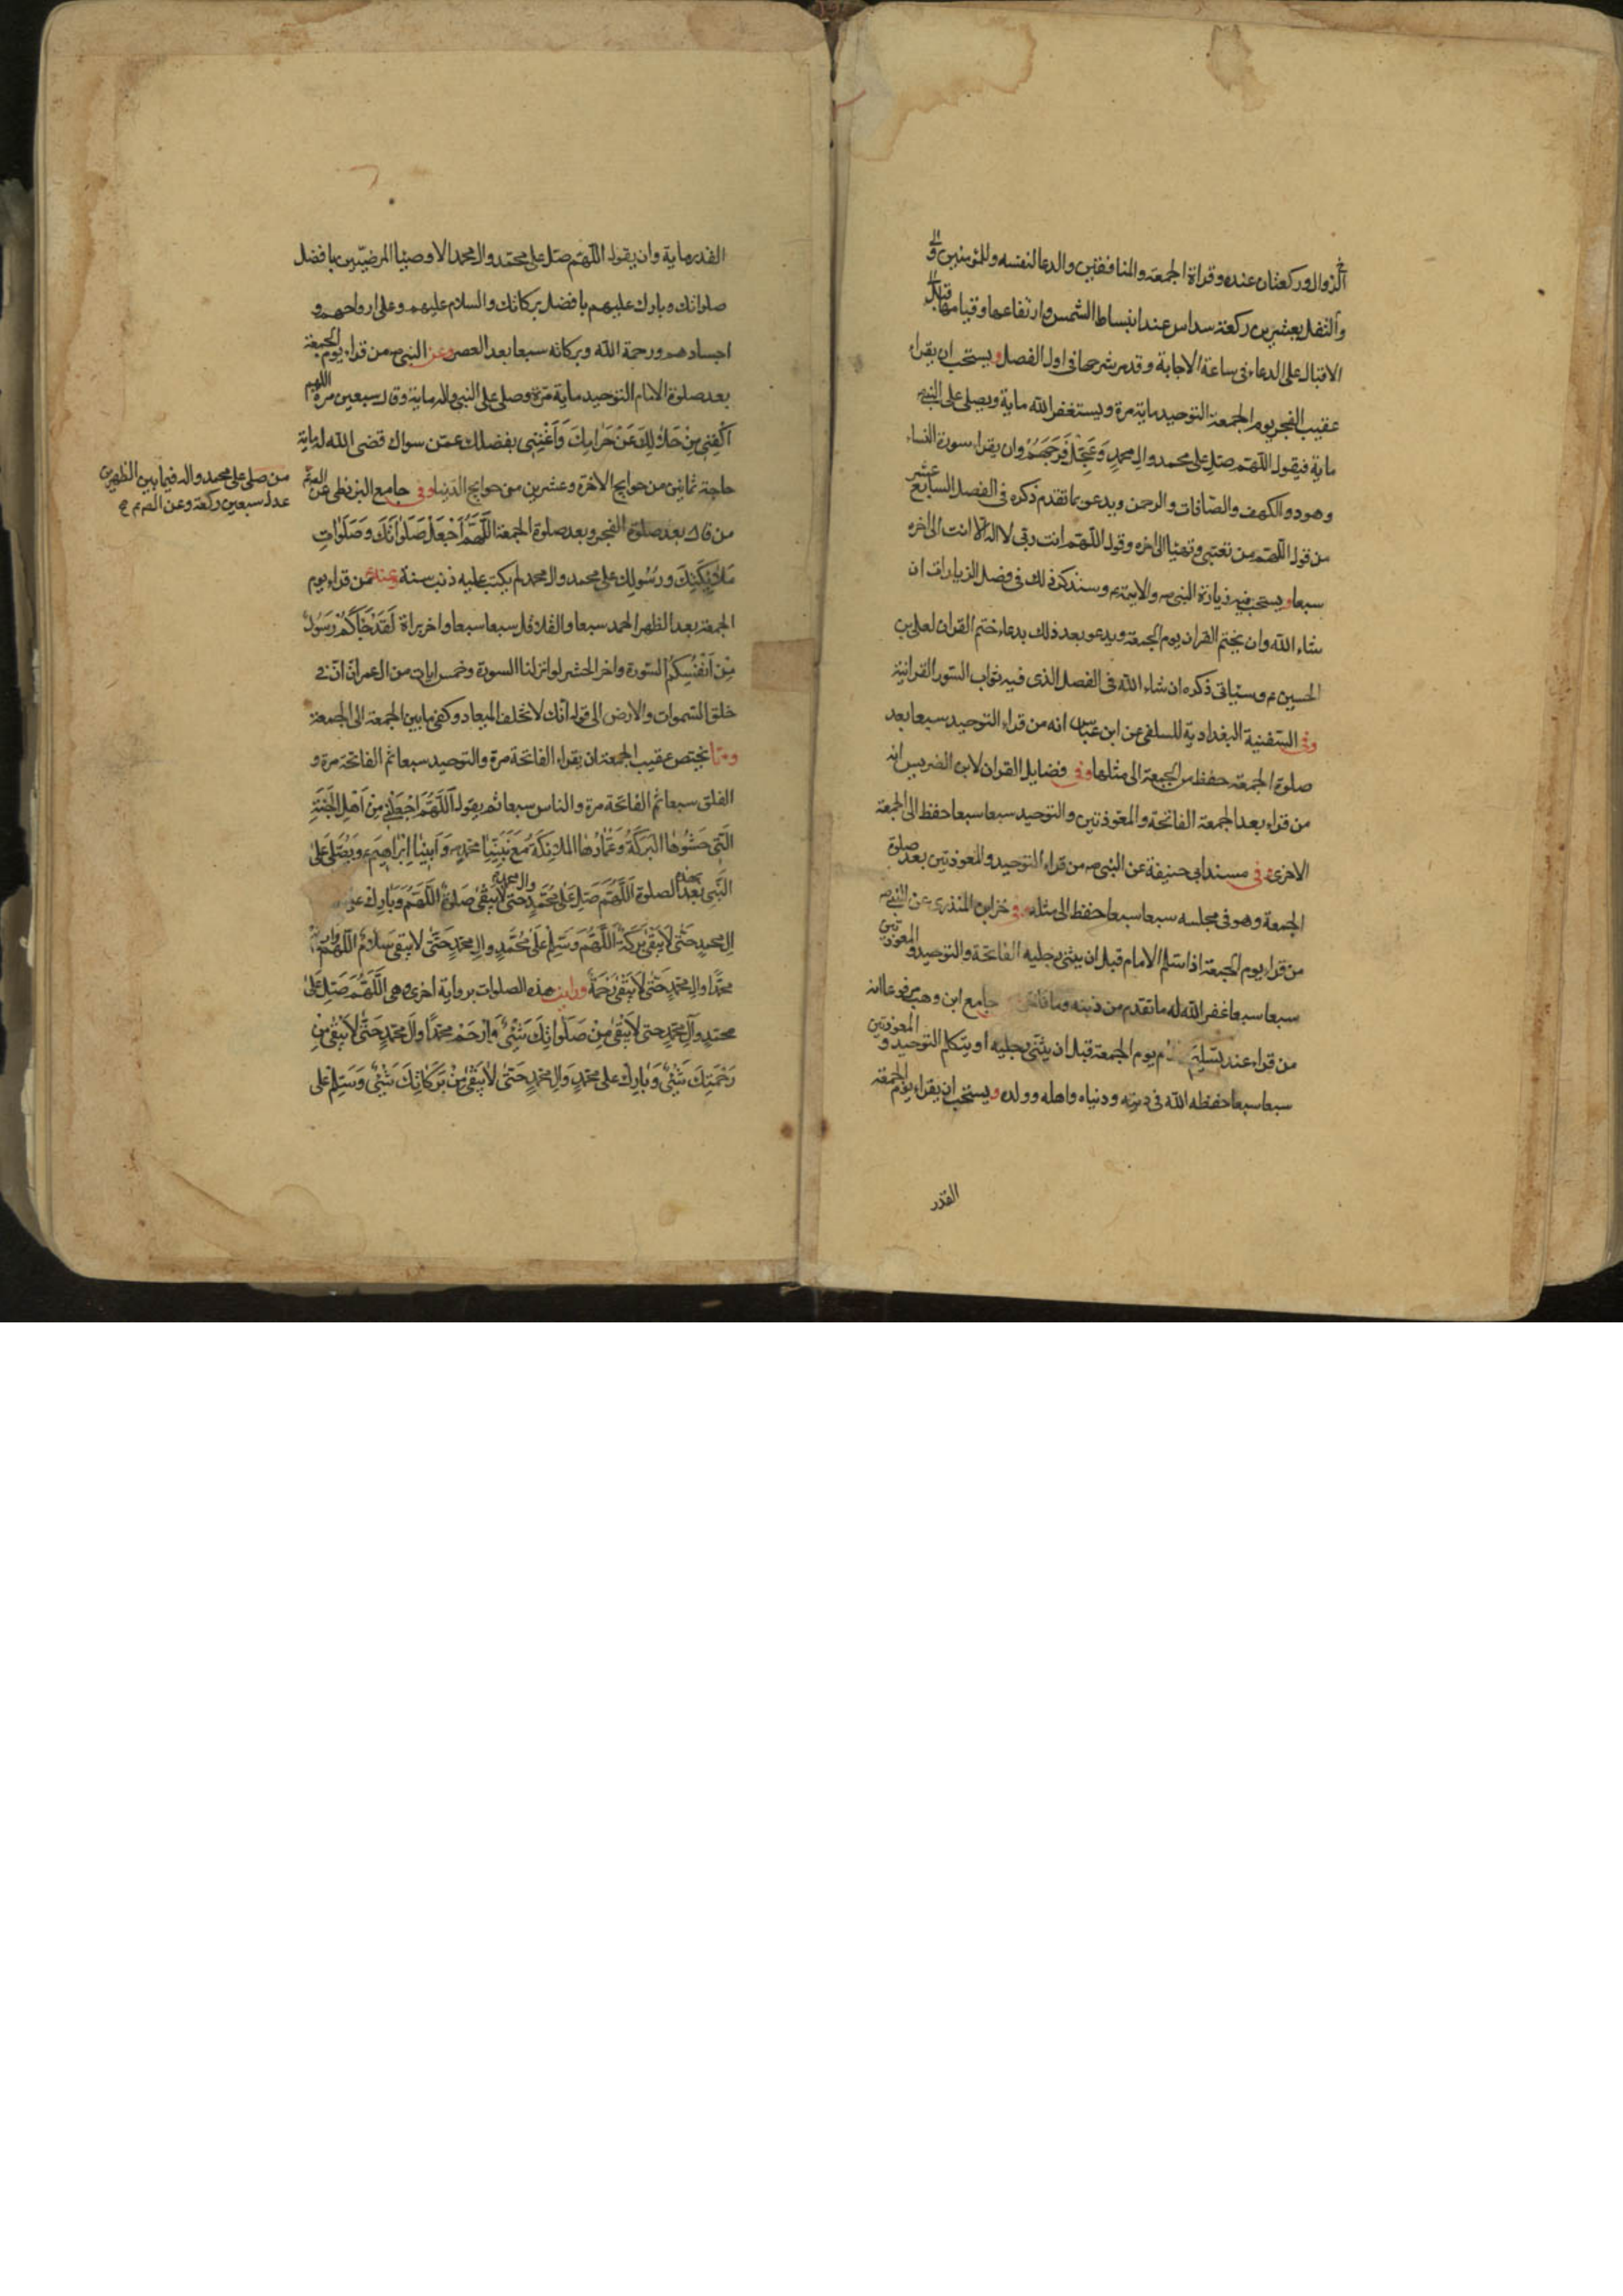 الزوال وركعتان عنده وقراة الجمعة والمنافقين والدعا لنفسه وللمؤمنين و
والنفل بعشرين ركعة سداس عند انبساط الشمس وارتفاعها وقيامها قبل
الاقبال على الدعاء فى ساعة الاجابة وقد مر شرحها فى اول الفصل ويستحب ان يقراء
عقيب الفجر يوم الجمعة التوحيد ماية مرة ويستغفر الله ماية ويصلى على النبى ص
ماية فيقول اللهم صل على محمد وال محمد وَعَجِّل فَرَجَهُمْ وان يقراء سورة النساء
وهود والكهف والصافات والرحمن ويدعو بما تقدم ذكره فى الفصل السابع عشر
من قول اللهم من تعبى وتهيا الى اخره وقول اللهم انت ربى لا اله الا انت الى اخره
سبعا ويستحب فيه زيارة النبى ص والايمة ع وسنذكر ذلك فى فضل الزيارات ان
شاء الله وان يختم القران يوم الجمعة ويدعو بعد ذلك بدعاء ختم القران لعلى بن
الحسين ع وسياتى ذكره ان شاء الله فى الفصل الذى فيه ثواب السور القرانية
وفى السفنية البغدادية للسلفى عن ابن عباس انه من قراء التوحيد سبعا بعد
صلوة الجمعة حفظ من الجمعة الى مثلها وفى فضايل القران لابن الضريس انه
من قراء بعد الجمعة الفاتحة والمعوذتين والتوحيد سبعا سبعا حفظ الى الجمعة
الاخرى وفى مسند ابى حنيفة عن النبى ص من قراء التوحيد والمعوذتين بعد صلوة
الجمعة وهو فى مجلسه سبعا سبعا حفظ الى مثله وفى المنذرى عن النبى ص
من قراء يوم الجمعة اذا سلم الامام قبل ان يثنى رجليه الفاتحة والتوحيد والمعوذتين
سبعا سبعا غفر الله له ما تقدم من ذنبه وما تاخر جامع ابن وهب مرفوعا انه
من قراء عند تسليم يوم الجمعة قبل ان يثنى رجليه او يتكلم التوحيد و المعوذتين
سبعا سبعا حفظه الله فى دينه ودنياه واهله وولده ويستحب ان يقراء يوم الجمعة
القدر
القدر ماية وان يقول اللهم صل على محمد وال محمد الاوصيا المرضيين بافضل
صلواتك وبارك عليهم بافضل بركاتك والسلام عليهم وعلى ارواحهم و
اجسادهم ورحمة الله وبركاته سبعا بعد العصر وعن النبى ص من قراء يوم الجمعة
بعد صلوة الامام التوحيد ماية مرة وصلى على النبى واله ماية وقال سبعين مرة اللهم
اكْفِنِى بِحَلالِكَ عَنْ حَرامِكَ وَأَغْنِنِى بفضلك عمن سواك قضى الله له ماية
حاجة ثمانين من حوايج الاخرة وعشرين من حوايج الدنيا وفى جامع البزنطى عن
من قال بعد صلوة الفجر وبعد صلوة الجمعة اللَّهُمَّ اجْعَلْ صَلَوٰاتَكَ وَصَلَوٰاتِ
مَلاٰئِكَتِكَ ورُسُولِك على محمد وال محمد لم يكتب عليه ذنب سنة وعنه من قراء يوم
الجمعة بعد الظهر الحمد سبعا والقلاقل سبعا سبعا واخر براة لَقَدْ جٰاءَكُمْ رَسُولٌ
مِنْ أَنْفُسِكُمْ السورة واخر الحشر لو انزلنا السورة وخمس ايات من ال عمران انّ فى
خلق السموات والارض الى قوله انك لا تخلف الميعاد وكفى ما بين الجمعة الى الجمعة
ومما يختص عقيب الجمعة ان يقراء الفاتحة مرة والتوحيد سبعا ثم الفاتحة مرة و
الفلق سبعا ثم الفاتحة مرة والناس سبعا ثم يقول اَللَّهُمَّ اجْعَلْنِى مِنْ أَهْلِ الْجَنَّةِ
الَّتِى حَشْوُهَا الْبَرَكَةُ وَعُمّٰارُهَا المَلاٰئِكَةُ مَعَ نَبِيِّنٰا محمد ص وَأَبِينٰا إِبْرٰاهِيمَ ع وَيُصَلِّى عَلَى
النَّبِى بعد هذه الصلوة اَللَّهُمَّ صَلِّ عَلىٰ مُحَمَّدٍ وال محمد حَتّىٰ لاٰ يَبْقىٰ صَلوٰةٌ اللَّهُمَّ وَبٰارِكْ على
الِ محمدٍ حَتّىٰ لاٰ يَبْقىٰ بَرَكَةٌ اللَّهُمَّ وَسَلِّمْ عَلىٰ مُحَمَّدٍ وَالِ محمدٍ حَتّىٰ لا يبقى سَلاٰمٌ اللَّهُمَّ وارحم
محمدًا وال محمدٍ حَتّىٰ لاٰ يَبْقىٰ رَحْمَةٌ ورايت هذه الصلوات برواية اخرى وهى اللَّهُمَّ صَلِّ عَلىٰ
محمدٍ وَآلِ محمدٍ حتى لاٰ يَبْقىٰ مِنْ صَلَوٰاتِكَ شَيْئٌ وَارْحَمْ محمدًا وَآلَ محمدٍ حَتّىٰ لاٰ يَبْقىٰ مِنْ
رَحْمَتِكَ شَيْئٌ وَبٰارِكْ على محمدٍ وَالِ محمدٍ حَتّىٰ لاٰ يَبْقىٰ مِنْ بَرَكٰاتِكَ شَيْئٌ وَسَلِّمْ على
من صلى على محمد واله فيما بين الظهرين
عدل سبعين ركعة وعن